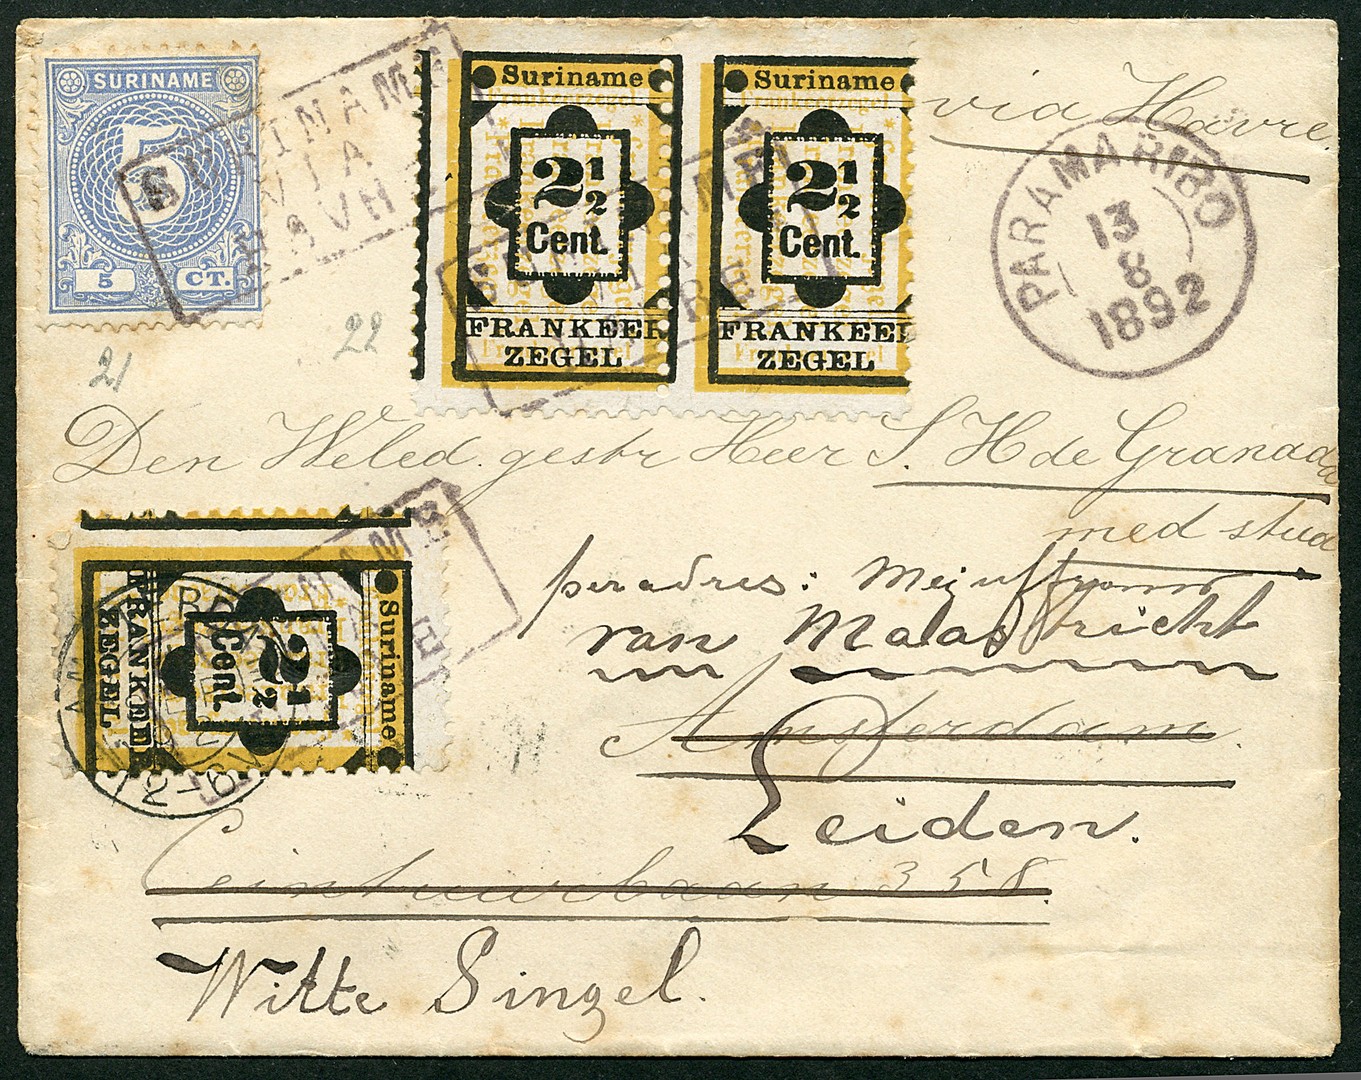 SURINAME
5
5 CT.
SURINAME
VIA
HAVRE
Suriname
2½
Cent.
FRANKEER
ZEGEL
Suriname
2½
Cent.
FRANKEE
ZEGEL
SURINAME
VIA
via Havre
PARAMARIBO
13
8
1892
21
22
Den Weled. gestr Heer S. H de Granada
med stud
per adres: Mejuffrouw
van Maastricht
Amsterdam.
Leiden.
Ceintuurbaan 358
Witte Singel.
Suriname
2½
Cent.
FRANKEE
ZEGEL
12-6